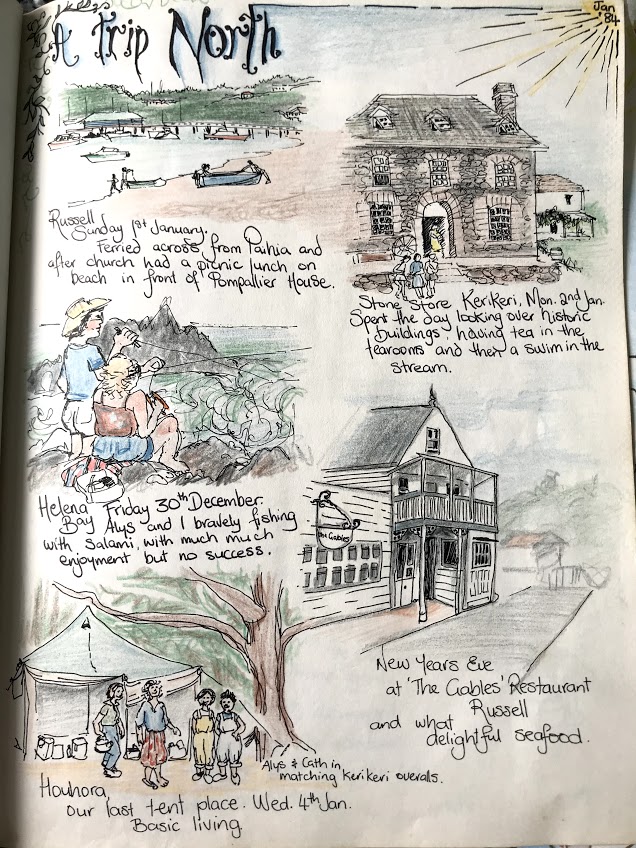 A Trip North
Jan
'84
Russell
Sunday 1st January.
Ferried across from Paihia and
after church had a picnic lunch on
beach in front of Pompallier House.
Stone Store Kerikeri, Mon. 2nd Jan.
Spent the day looking over historic
buildings, having tea in the
tearooms and then a swim in the
stream.
Helena Friday 30th December.
Bay Alys and I bravely fishing
with Salami, with much much
enjoyment but no success.
The Gables
New Years Eve
at 'The Gables' Restaurant
Russell
and what
delightful seafood.
Alys & Cath in
matching Kerikeri overalls.
Houhora
our last tent place. Wed. 4th Jan.
Basic living